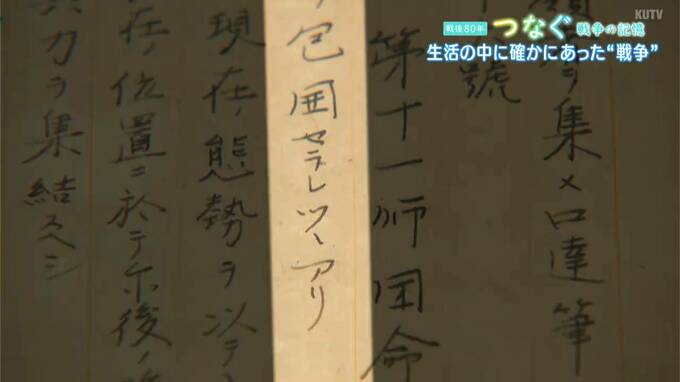 KUTV
戦後80年 つなぐ 戦争の記憶
生活の中に確かにあった“戦争”
ヲ集メ口達筆
號
第十一師団命
包囲セラレツヽアリ
現在ノ態勢ヲ以テ
在ノ位置ニ於テ尓後ノ
兵力ヲ集結スヘシ